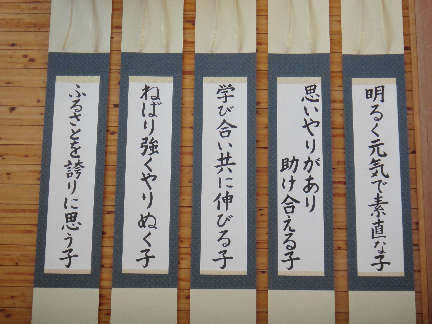 明るく元気で素直な子
思いやりがあり
助け合える子
学び合い共に伸びる子
ねばり強くやりぬく子
ふるさとを誇りに思う子